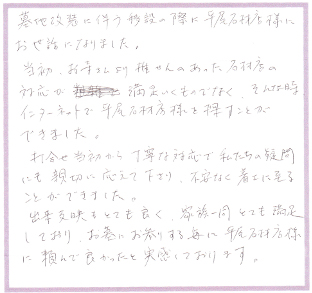 墓地改葬に伴う移設の際に平尾石材店様に
お世話になりました。
当初、お寺さんより推せんのあった石材店の
対応が 満足いくものでなく、そんな時
インターネットで平尾石材店様を探すことが
できました。
打合せ当初から丁寧な対応で私たちの疑問
にも親切に応えて下さり、不安なく着工に至る
ことができました。
出来映えもとても良く、家族一同とても満足
しており、お墓にお参りする毎に平尾石材店様
に頼んで良かったと実感しております。